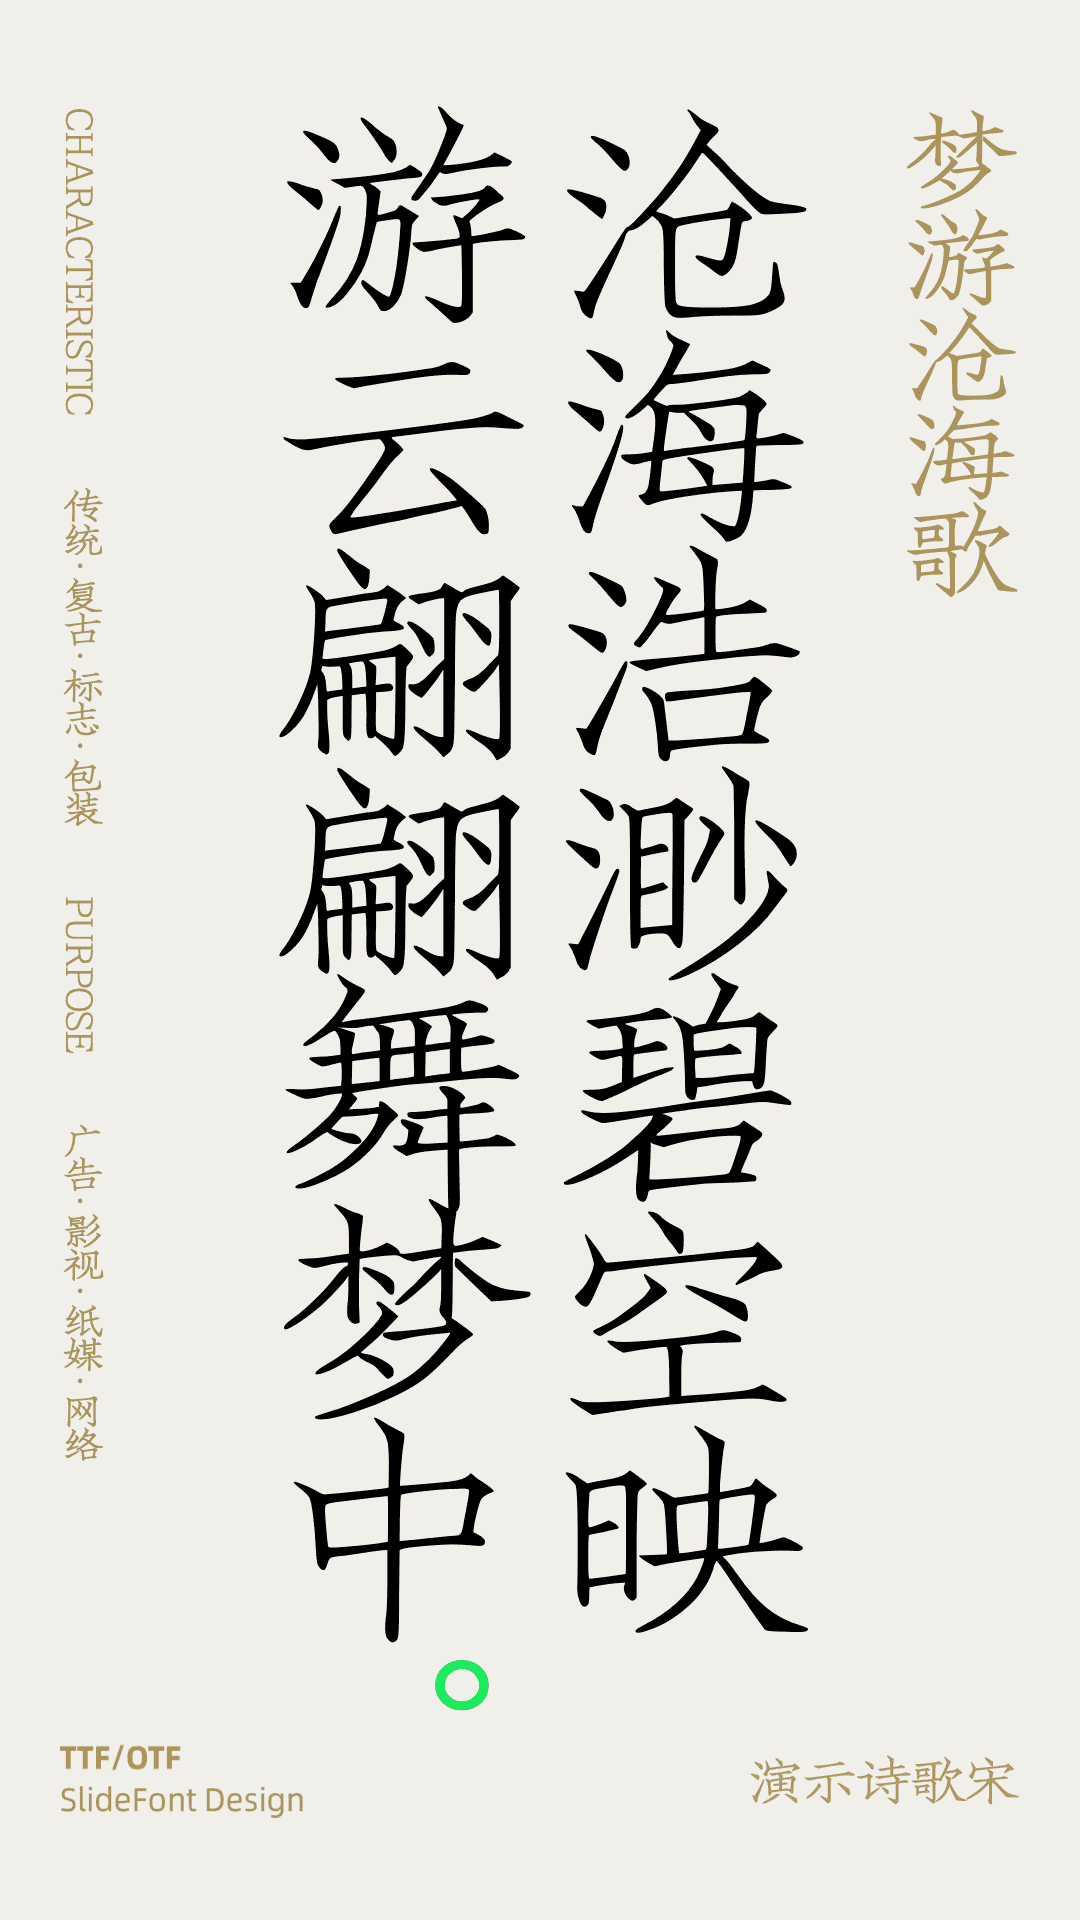 梦游沧海歌
沧海浩渺碧空映
游云翩翩舞梦中。
CHARACTERISTIC
传统·复古·标志·包装
PURPOSE
广告·影视·纸媒·网络
TTF/OTF
SlideFont Design
演示诗歌宋